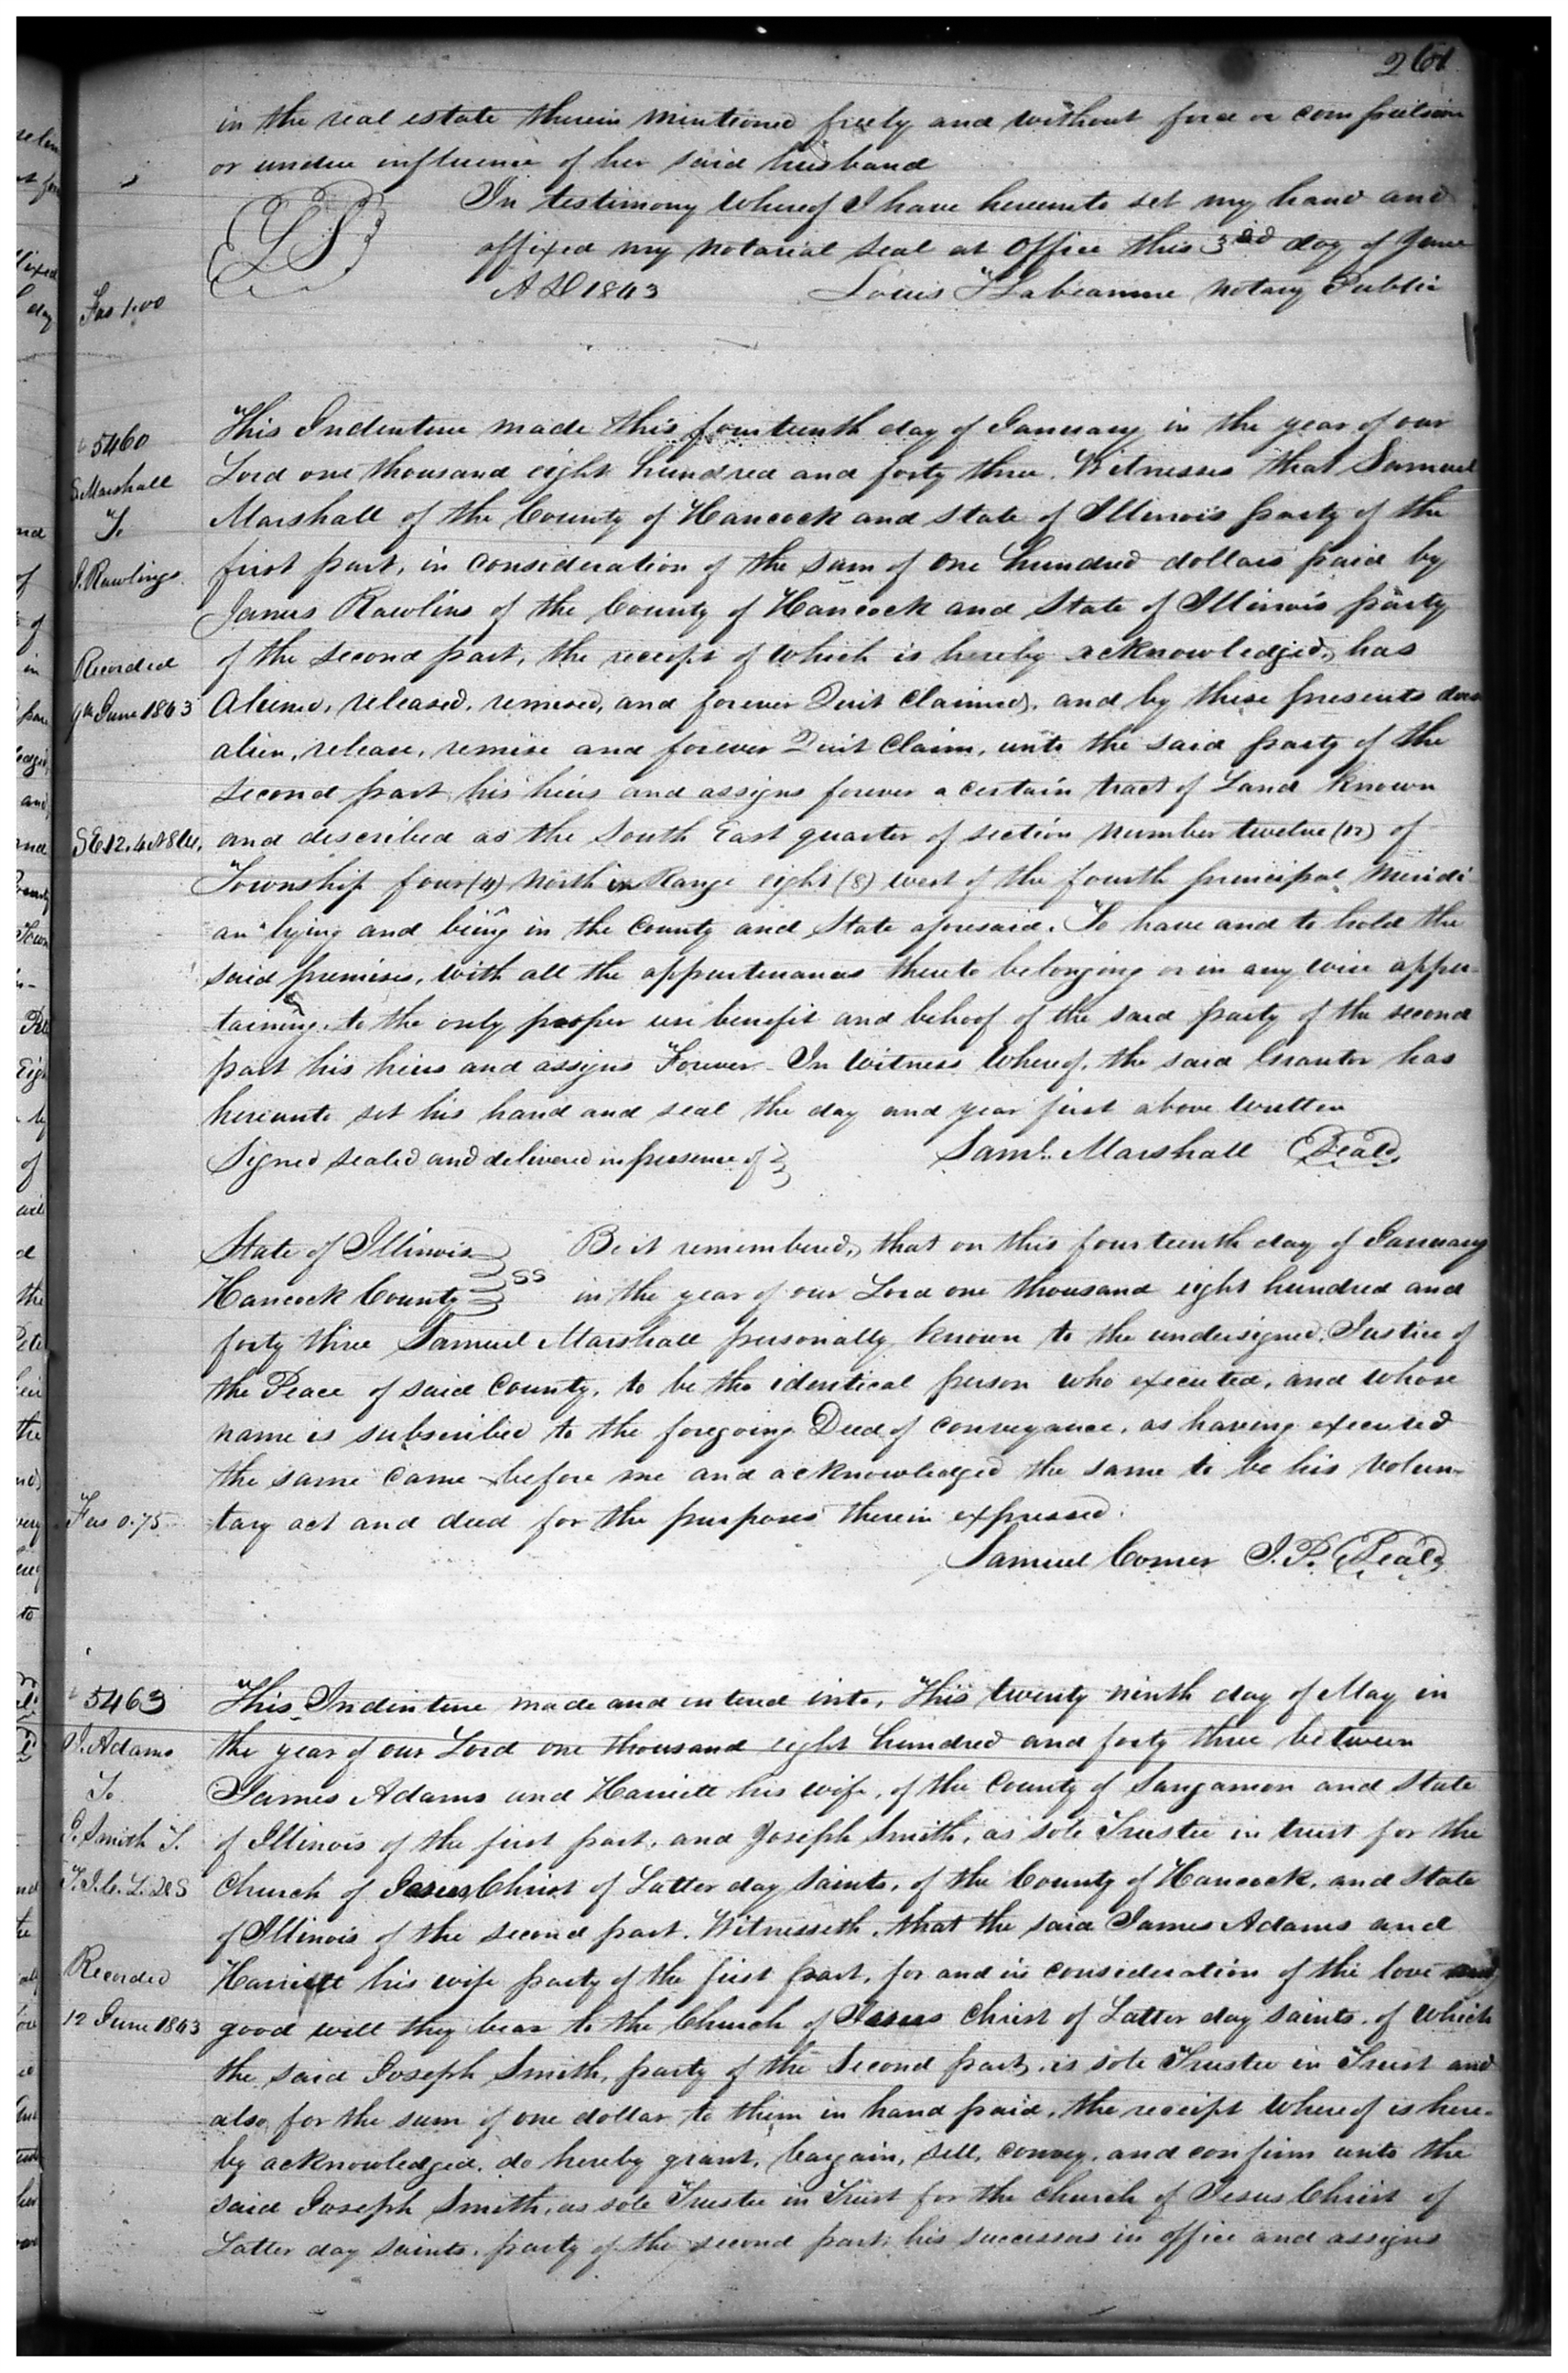 261
in the real estate therein mentioned freely and without force or compulsion
or undue influence of her said husband
LS
In testimony whereof I have hereunto set my hand and
affixed my notarial seal at office this 3rd day of June
Fees 1.00
AD 1843 Louis Labeaume Notary Public
5460
S. Marshall
To
J. Rawlings
Recorded
9th June 1843
SE12.4N8W.
This Indenture made this fourteenth day of January in the year of our
Lord one thousand eight hundred and forty three. Witnesses that Samuel
Marshall of the County of Hancock and State of Illinois party of the
first part, in consideration of the sum of one hundred dollars paid by
James Rawlins of the County of Hancock and State of Illinois party
of the second part, the receipt of which is hereby acknowledged, has
Aliened, released, remised, and forever Quit Claimed, and by these presents does
alien, release, remise and forever Quit Claim, unto the said party of the
second part his heirs and assigns forever a certain tract of Land known
and described as the South East quarter of section number twelve (12) of
Township four (4) North in Range eight (8) west of the fourth principal Meridi-
an lying and being in the County and State aforesaid. To have and to hold the
said premises, with all the appurtenances thereto belonging or in any wise apper-
taining, to the only proper use benefit and behoof of the said party of the second
part his heirs and assigns Forever. In Witness Whereof, the said Grantor has
hereunto set his hand and seal the day and year first above written
Signed sealed and delivered in presence of } Saml. Marshall Seal
State of Illinois } Be it remembered, that on this fourteenth day of January
Hancock County } SS in the year of our Lord one thousand eight hundred and
forty three Samuel Marshall personally known to the undersigned, Justice of
the Peace of said County, to be the identical person who executed, and whose
name is subscribed to the foregoing Deed of conveyance, as having executed
the same came before me and acknowledged the same to be his Volun-
Fees 0.75 tary act and deed for the purposes therein expressed.
Samuel Comer J. P. Seal
5463
J. Adams
To
J. Smith T.
T. J. C. L. D S
Recorded
12 June 1843
This Indenture made and entered into, This twenty ninth day of May in
the year of our Lord one thousand eight hundred and forty three between
James Adams and Harriett his wife, of the County of Sangamon and State
of Illinois of the first part, and Joseph Smith, as sole Trustee in trust for the
Church of Jesus Christ of Latter day Saints, of the County of Hancock, and State
of Illinois of the second part. Witnesseth, that the said James Adams and
Harriett his wife party of the first part, for and in consideration of the love and
good will they bear to the Church of Jesus Christ of Latter day saints, of which
the said Joseph Smith, party of the Second part, is sole Trustee in Trust and
also for the sum of one dollar to them in hand paid, the receipt whereof is here-
by acknowledged, do hereby grant, bargain, sell, convey, and confirm unto the
said Joseph Smith, as sole Trustee in Trust for the church of Jesus Christ of
Latter day saints, party of the second part, his successors in office and assigns